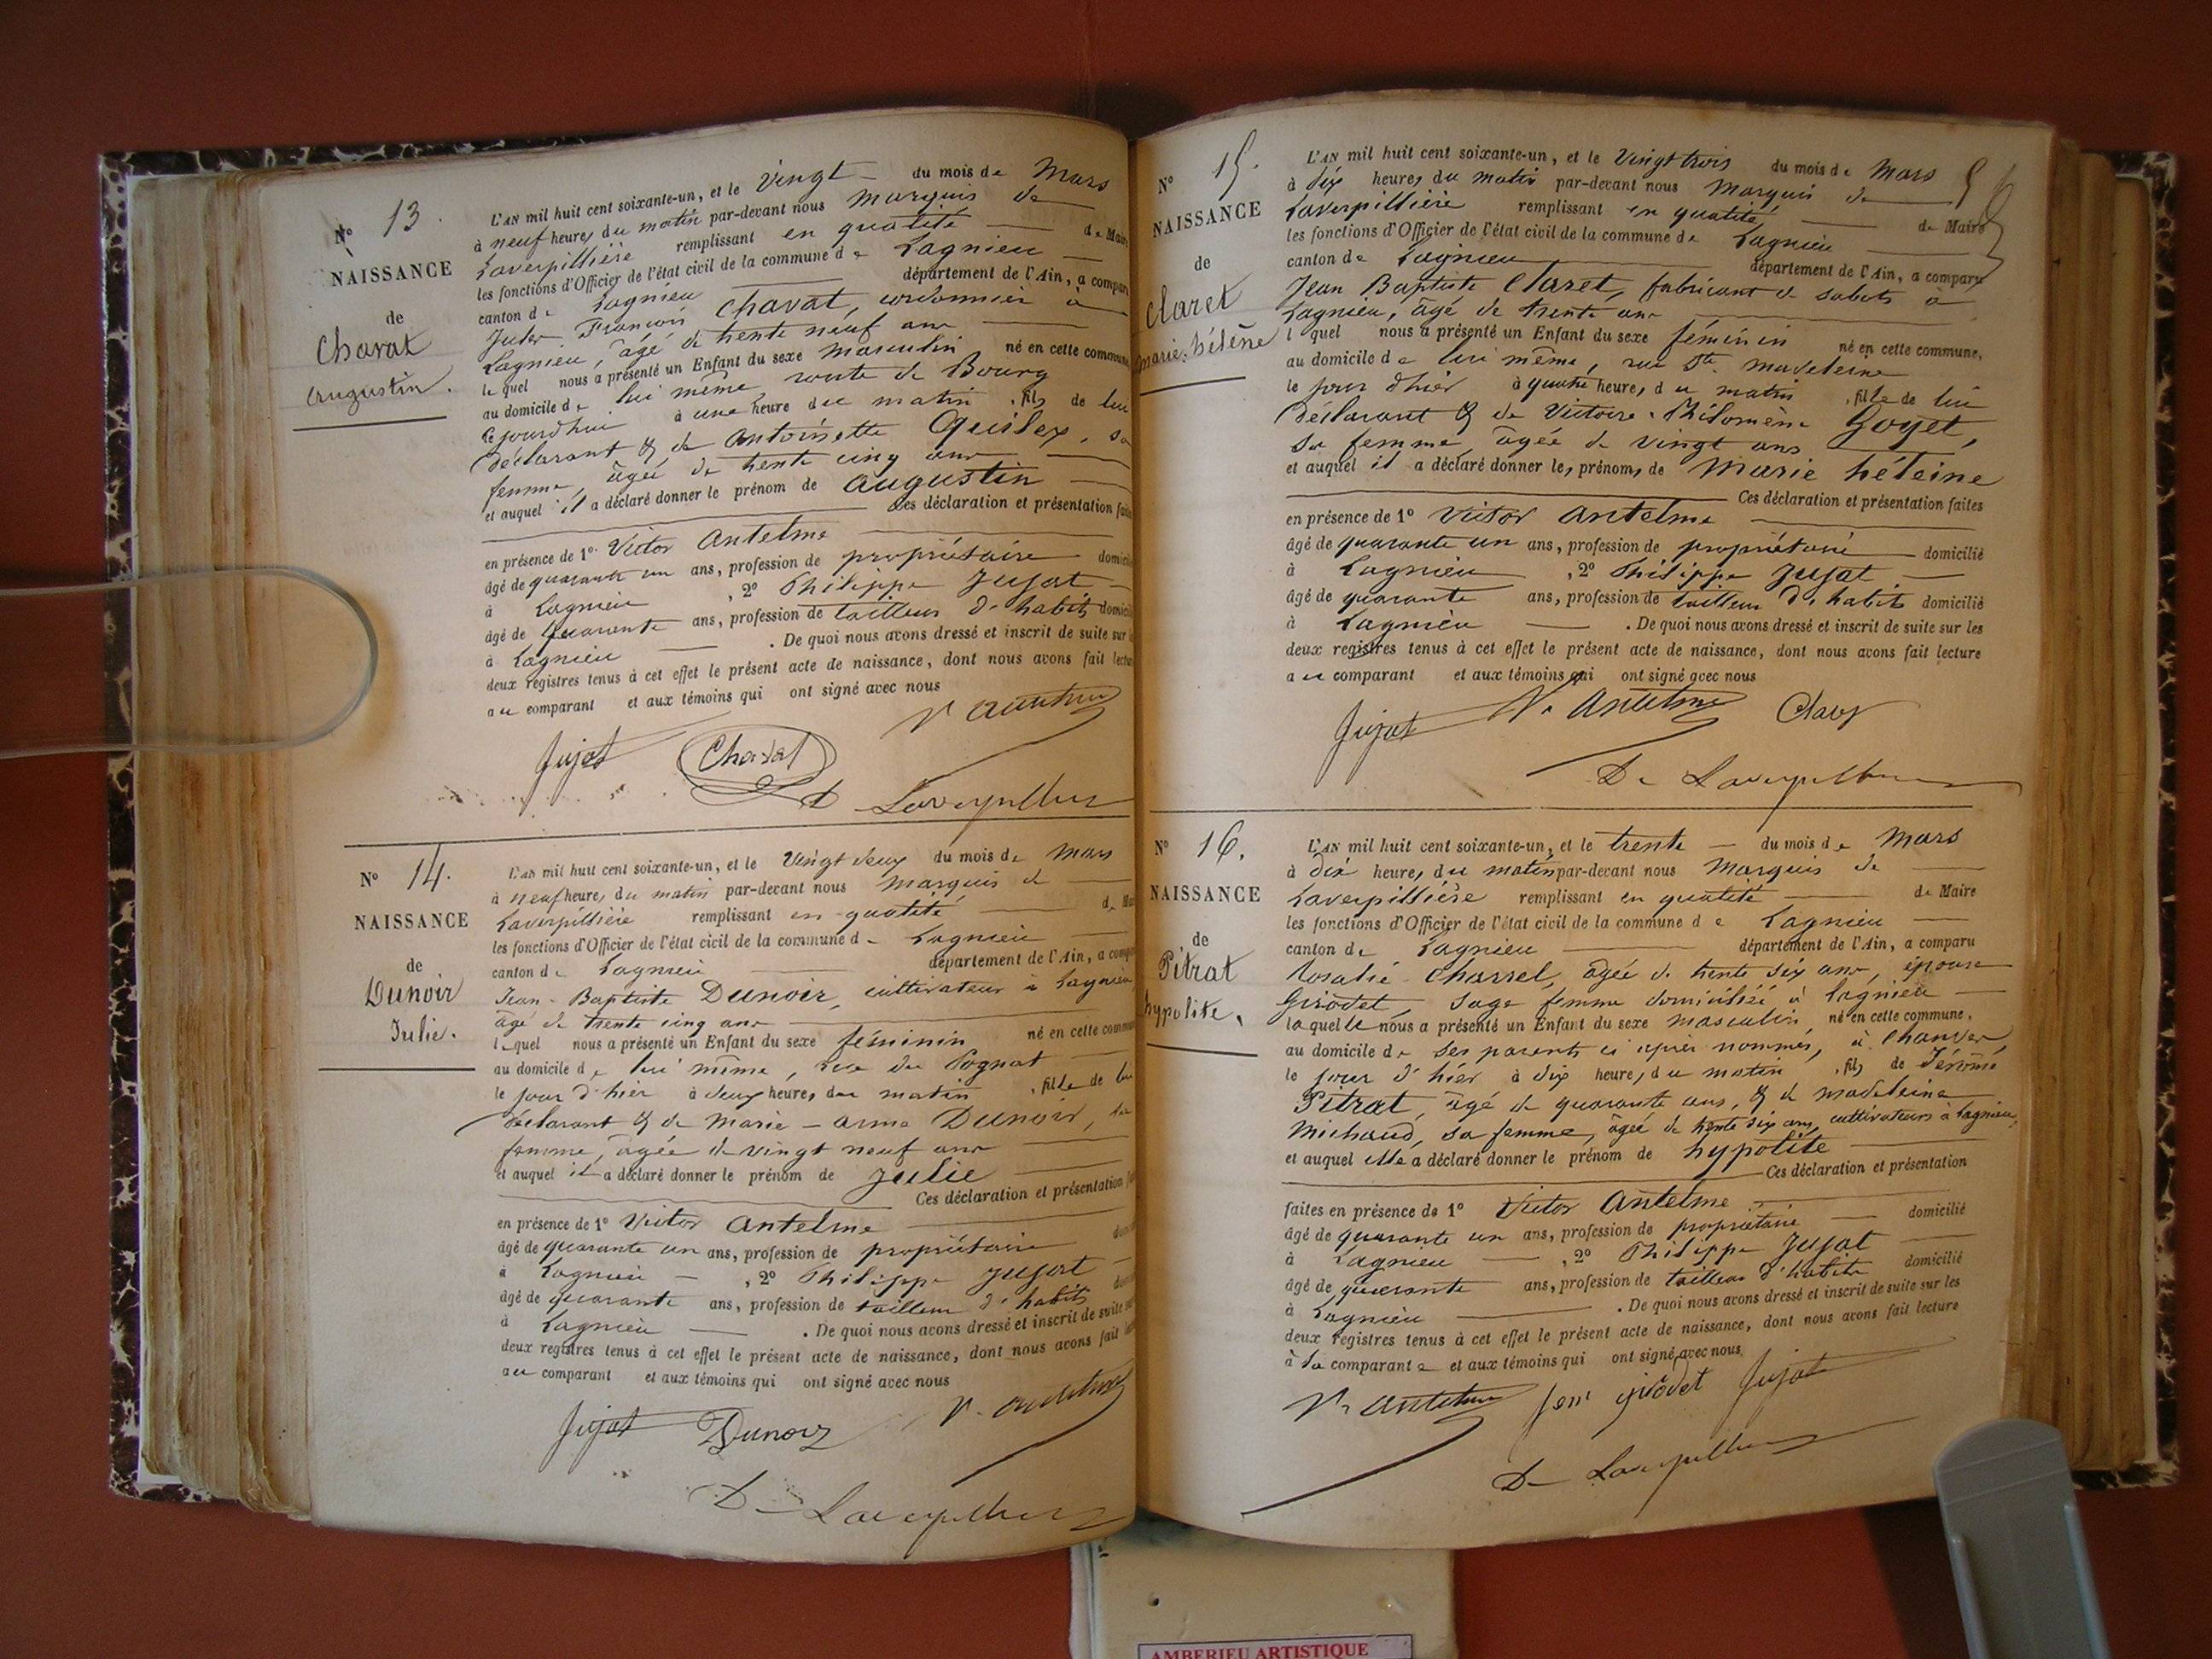 N° 13.
NAISSANCE
de
Chavat
Augustin.
L'AN mil huit cent soixante-un, et le vingt du mois de Mars
à neuf heures du matin par-devant nous Marquis de
Laverpillière remplissant en qualité de Maire
les fonctions d'Officier de l'état civil de la commune de Lagnieu
canton de Lagnieu département de l'Ain, a comparu
François Chavat, cordonnier à
Lagnieu, âgé de trente neuf ans
lequel nous a présenté un Enfant du sexe masculin né en cette commune,
au domicile de lui même, route de Bourg
cejourd'hui à une heure du matin, fils de lui
déclarant & de Antoinette sa
femme, âgée de trente cinq ans
et auquel il a déclaré donner le prénom de Augustin
Ces déclaration et présentation faites
en présence de 1° Victor Antelme
âgé de quarante un ans, profession de propriétaire domicilié
à Lagnieu, 2° Philippe Jujat
âgé de quarante ans, profession de tailleur d'habits domicilié
à Lagnieu. De quoi nous avons dressé et inscrit de suite sur les
deux registres tenus à cet effet le présent acte de naissance, dont nous avons fait lecture
au comparant et aux témoins qui ont signé avec nous
V. Antelme
Jujat Chavat
D Laverpilliere
N° 14.
NAISSANCE
de
Dunoir
Julie.
L'AN mil huit cent soixante-un, et le vingt deux du mois de Mars
à neuf heures du matin par-devant nous Marquis de
Laverpillière remplissant en qualité de Maire
les fonctions d'Officier de l'état civil de la commune de Lagnieu
canton de Lagnieu département de l'Ain, a comparu
Jean-Baptiste Dunoir, cultivateur à Lagnieu
âgé de trente cinq ans
lequel nous a présenté un Enfant du sexe féminin né en cette commune
au domicile de lui même, rue du Pognat
le jour d'hier à deux heures du matin, fille de lui
déclarant & de Marie-Anne Dunoir, sa
femme, âgée de vingt neuf ans
et auquel il a déclaré donner le prénom de Julie
Ces déclaration et présentation
en présence de 1° Victor Antelme
âgé de quarante un ans, profession de propriétaire
à Lagnieu, 2° Philippe Jujat
âgé de quarante ans, profession de tailleur d'habits
à Lagnieu. De quoi nous avons dressé et inscrit de suite sur
deux registres tenus à cet effet le présent acte de naissance, dont nous avons fait
au comparant et aux témoins qui ont signé avec nous
Jujat Dunoir V. Antelme
De Laverpilliere
N° 15.
NAISSANCE
de
Claret
Marie, hélène
L'AN mil huit cent soixante-un, et le vingt trois du mois de Mars
à dix heures du matin par-devant nous Marquis de
Laverpillière remplissant en qualité de Maire
les fonctions d'Officier de l'état civil de la commune de Lagnieu
canton de Lagnieu département de l'Ain, a comparu
Jean Baptiste Claret, fabricant de sabots à
Lagnieu, âgé de trente ans
lequel nous a présenté un Enfant du sexe féminin né en cette commune,
au domicile de lui même, rue Ste Madeleine
le jour d'hier à quatre heures du matin, fille de lui
déclarant & de Victoire-Philomène Goyet,
sa femme, âgée de vingt ans
et auquel il a déclaré donner les prénoms de Marie hélène
Ces déclaration et présentation faites
en présence de 1° Victor Antelme
âgé de quarante un ans, profession de propriétaire domicilié
à Lagnieu, 2° Philippe Jujat
âgé de quarante ans, profession de tailleur d'habits domicilié
à Lagnieu. De quoi nous avons dressé et inscrit de suite sur les
deux registres tenus à cet effet le présent acte de naissance, dont nous avons fait lecture
au comparant et aux témoins qui ont signé avec nous
Jujat V. Antelme
De Laverpilliere
N° 16.
NAISSANCE
de
Pitrat
hypolite,
L'AN mil huit cent soixante-un, et le trente du mois de Mars
à dix heures du matin par-devant nous Marquis de
Laverpillière remplissant en qualité de Maire
les fonctions d'Officier de l'état civil de la commune de Lagnieu
canton de Lagnieu département de l'Ain, a comparu
Rosalie Charrel, âgée de trente six ans, épouse
Girodet, sage femme domiciliée à Lagnieu
laquelle nous a présenté un Enfant du sexe masculin, né en cette commune,
au domicile de ses parents ci après nommés, à
le jour d'hier à dix heures du matin, fils de Jérôme
Pitrat, âgé de quarante ans, & de Madeleine
Michaud, sa femme, âgée de trente six ans, cultivateurs à Lagnieu,
et auquel elle a déclaré donner le prénom de hypolite
Ces déclaration et présentation
faites en présence de 1° Victor Antelme
âgé de quarante un ans, profession de propriétaire domicilié
à Lagnieu, 2° Philippe Jujat
âgé de quarante ans, profession de tailleur d'habits domicilié
à Lagnieu. De quoi nous avons dressé et inscrit de suite sur les
deux registres tenus à cet effet le présent acte de naissance, dont nous avons fait lecture
à la comparante et aux témoins qui ont signé avec nous
V. Antelme girodet Jujat
De Laverpilliere
AMBERIEU ARTISTIQUE